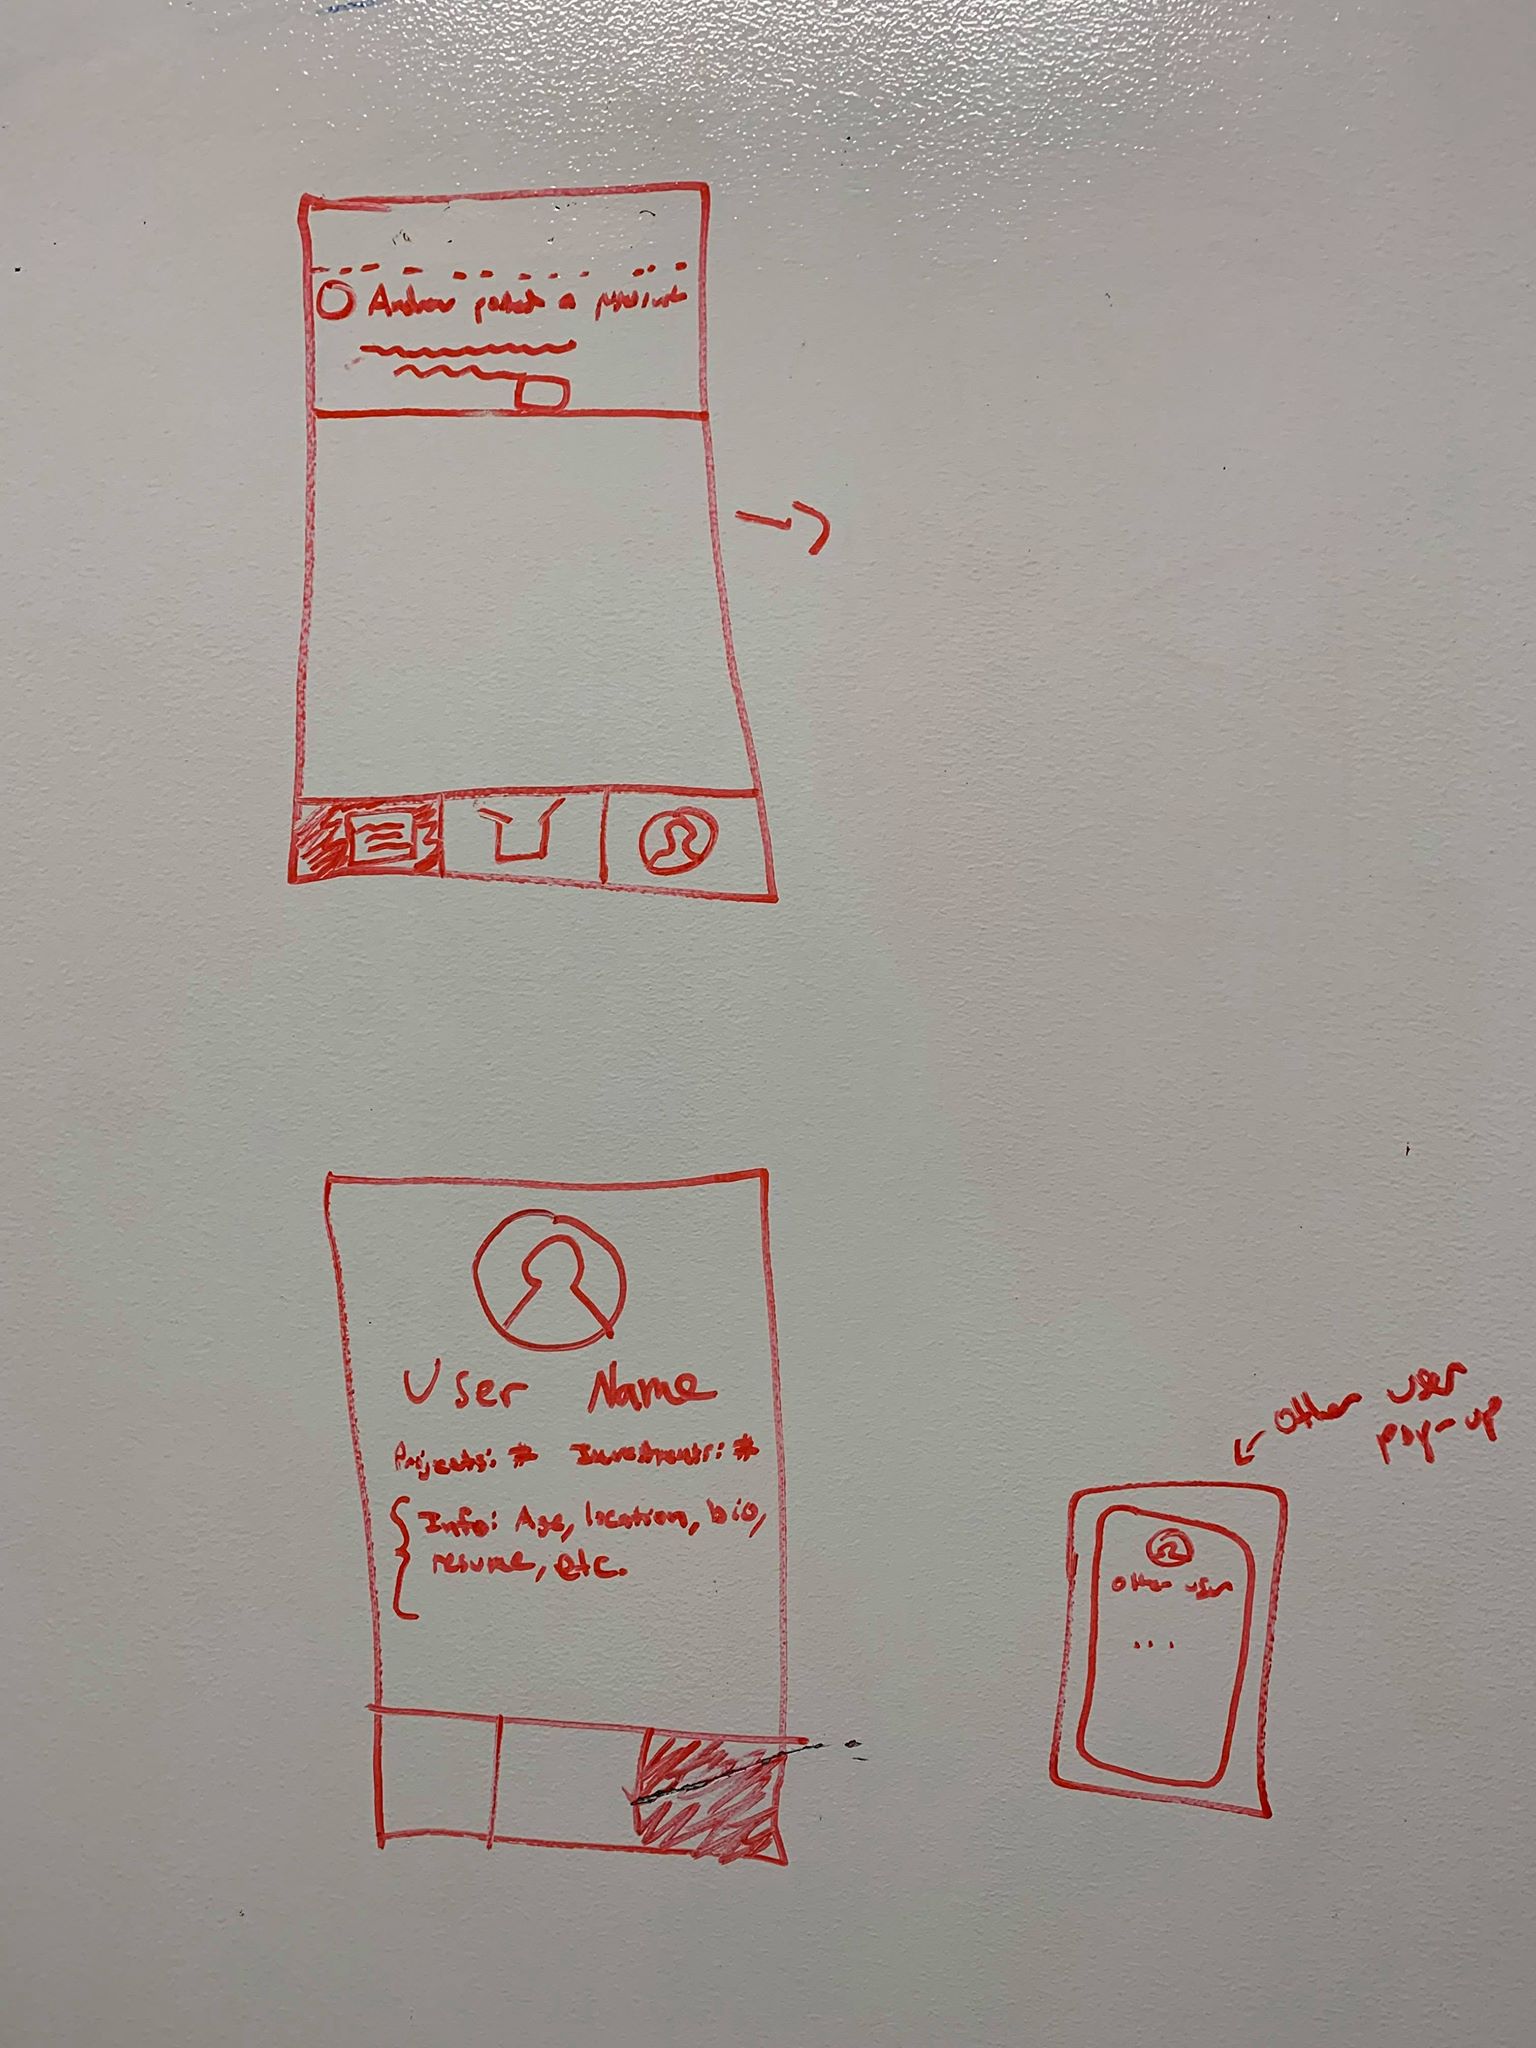 posted a
User Name
Projects: # Investments: #
Info: Age, location, bio,
resume, etc.
other user
pop-up
other user
...